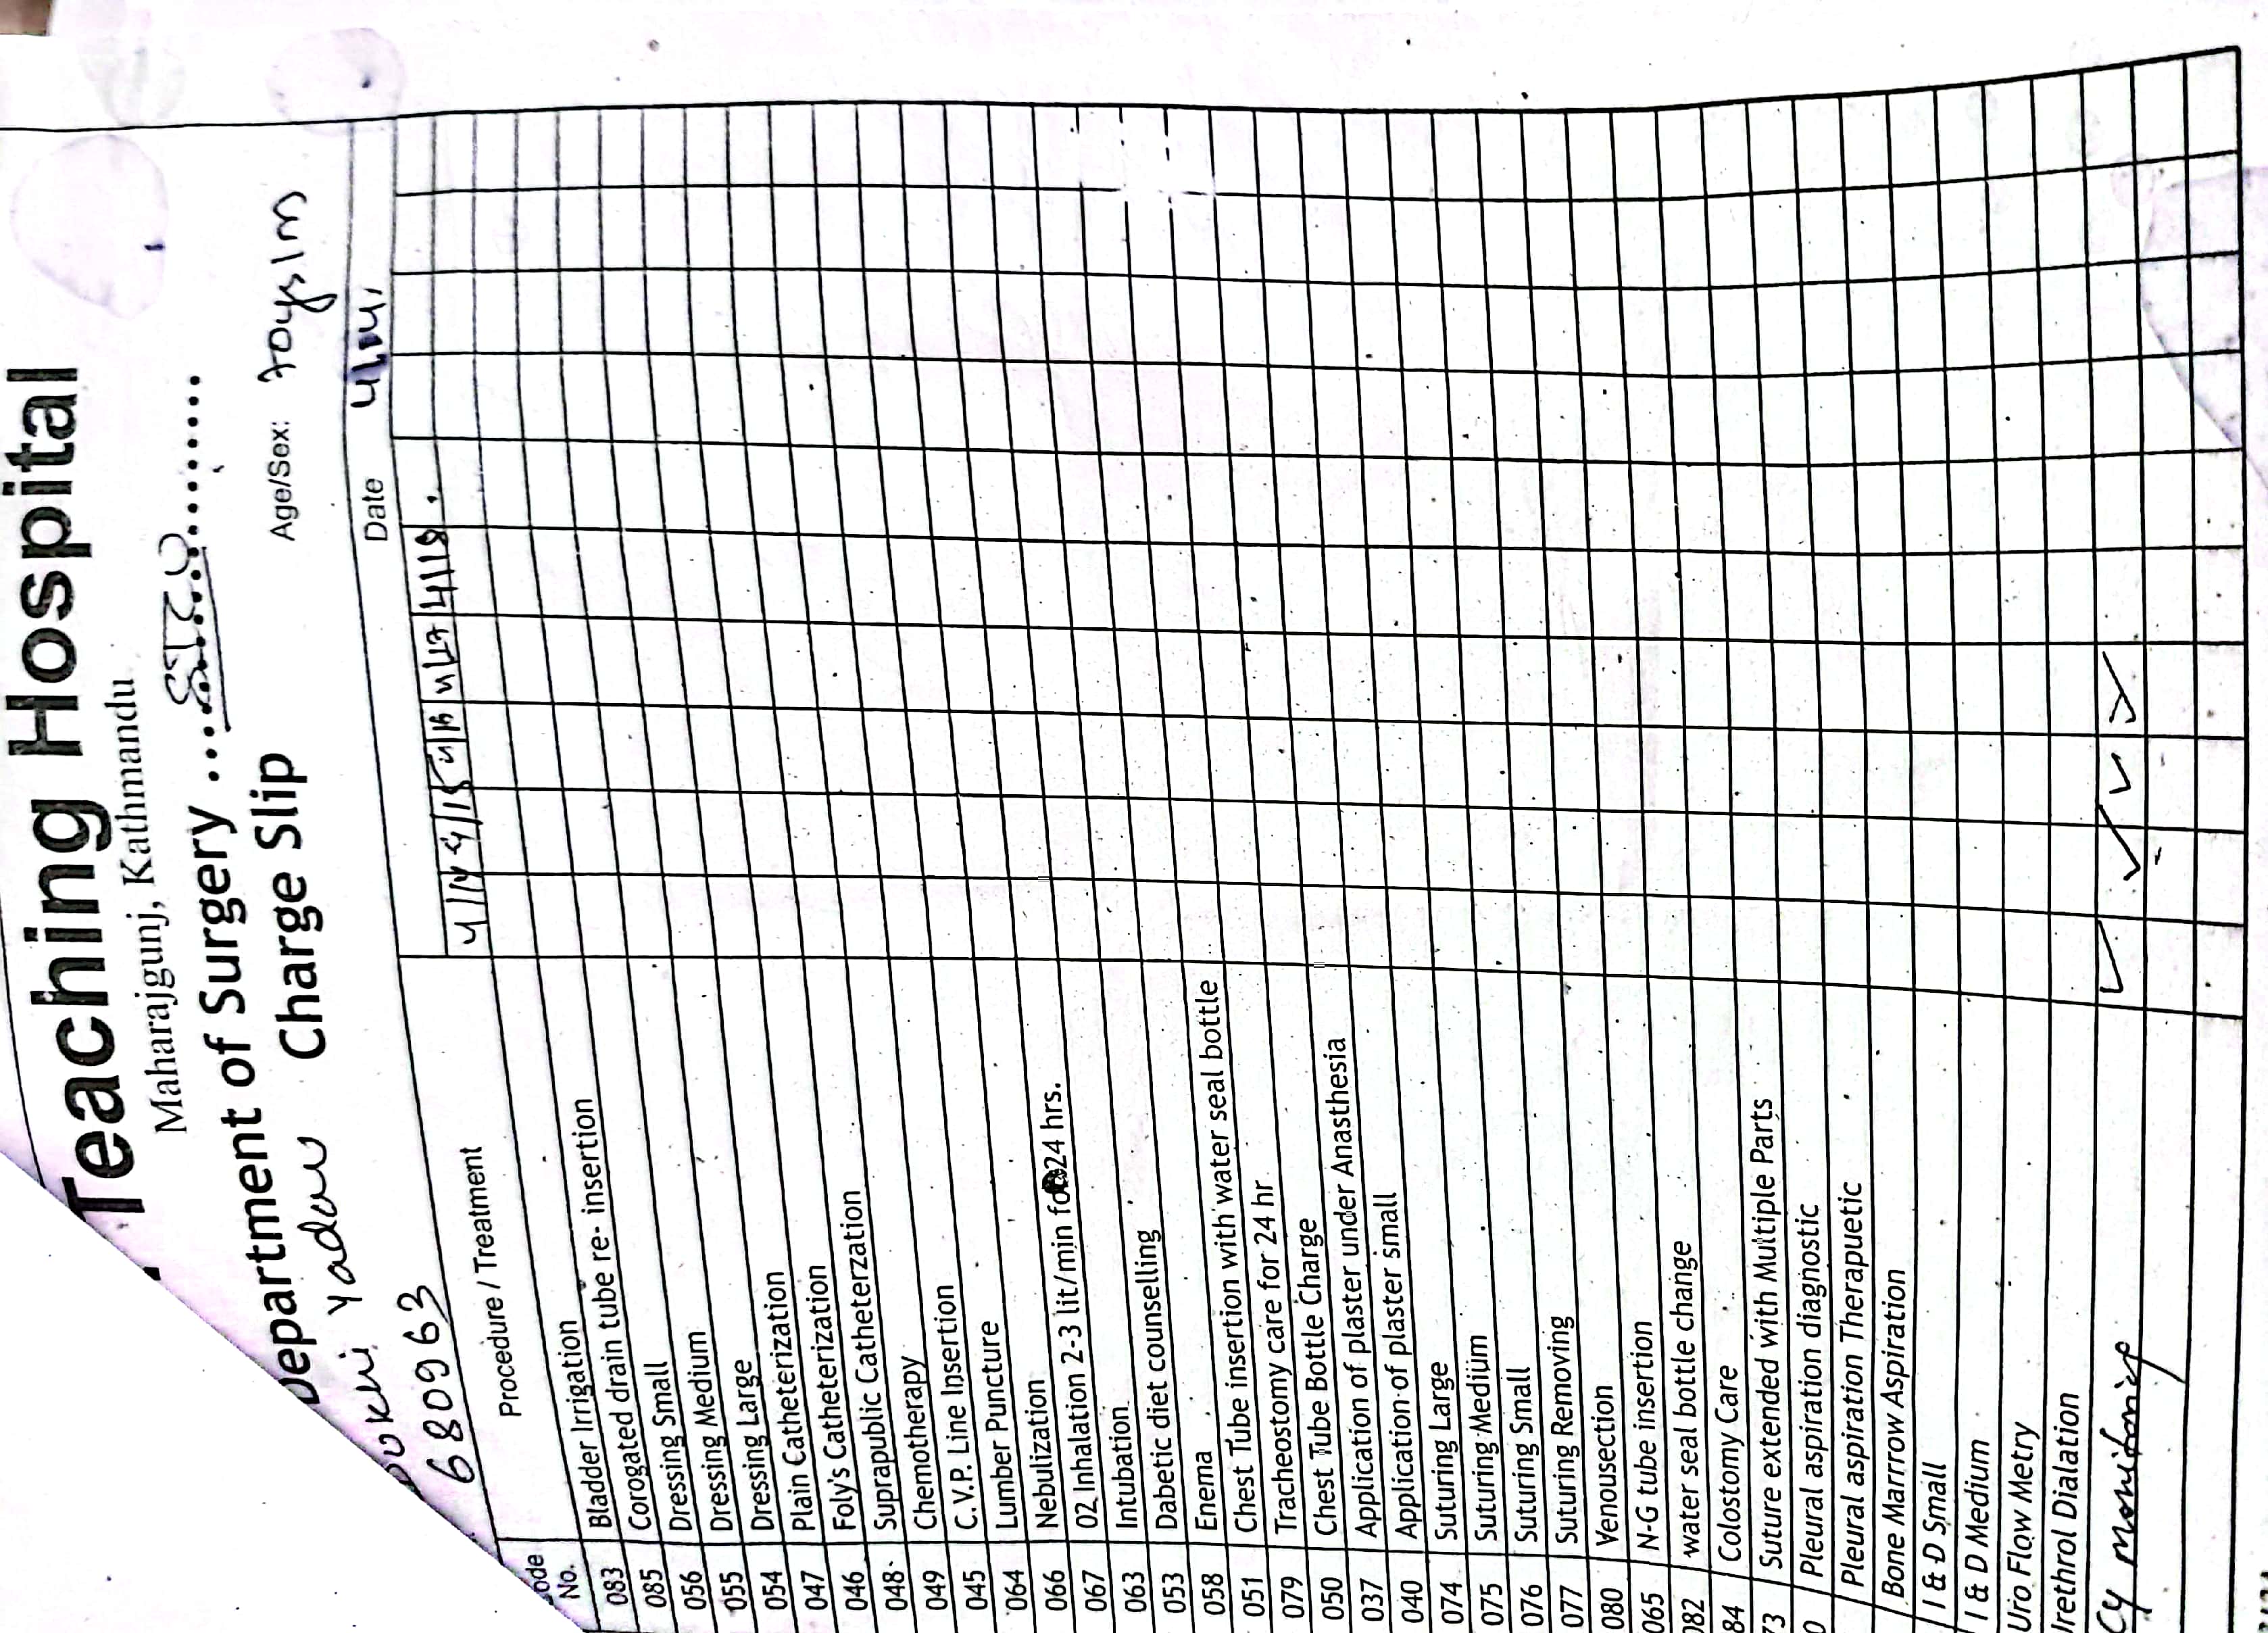 Teaching Hospital
Maharajgunj, Kathmandu
Department of Surgery ............
Charge Slip
Yadav
Age/Sex: 70ys/m
680963
Date
Procedure / Treatment
ode No.
4/14 4/15 4/16 4/17 4/18
083 Bladder Irrigation
085 Corogated drain tube re- insertion
056 Dressing Small
055 Dressing Medium
054 Dressing Large
047 Plain Catheterization
046 Foly's Catheterization
048 Suprapublic Catheterzation
049 Chemotherapy
045 C.V.P. Line Insertion
064 Lumber Puncture
066 Nebulization
067 02 Inhalation 2-3 lit/min for 24 hrs.
063 Intubation
053 Dabetic diet counselling
058 Enema
051 Chest Tube insertion with water seal bottle
079 Tracheostomy care for 24 hr
050 Chest Tube Bottle Charge
037 Application of plaster under Anasthesia
040 Application of plaster small
074 Suturing Large
075 Suturing Medium
076 Suturing Small
077 Suturing Removing
080 Venousection
065 N-G tube insertion
082 water seal bottle change
84 Colostomy Care
73 Suture extended with Multiple Parts
0 Pleural aspiration diagnostic
Pleural aspiration Therapuetic
Bone Marrrow Aspiration
I & D Small
I & D Medium
Uro Flow Metry
Urethrol Dialation
monitoring ✓ ✓ ✓ ✓